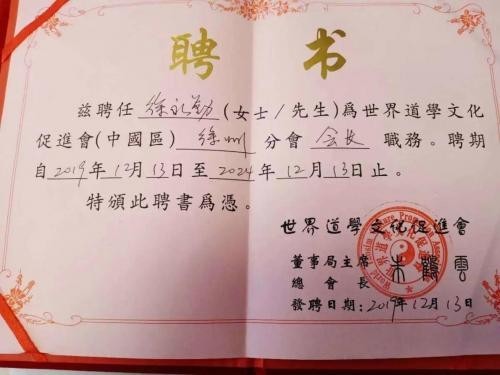 聘 书
兹聘任 徐永勤 (女士/先生)爲世界道學文化
促進會(中國區) 徐州 分會 会长 職務。聘期
自2019年12月13日至2024年12月13日止。
特頒此聘書爲憑。
世界道學文化促進會
董事局主席 朱鶴雲
總會長
發聘日期:2019年12月13日